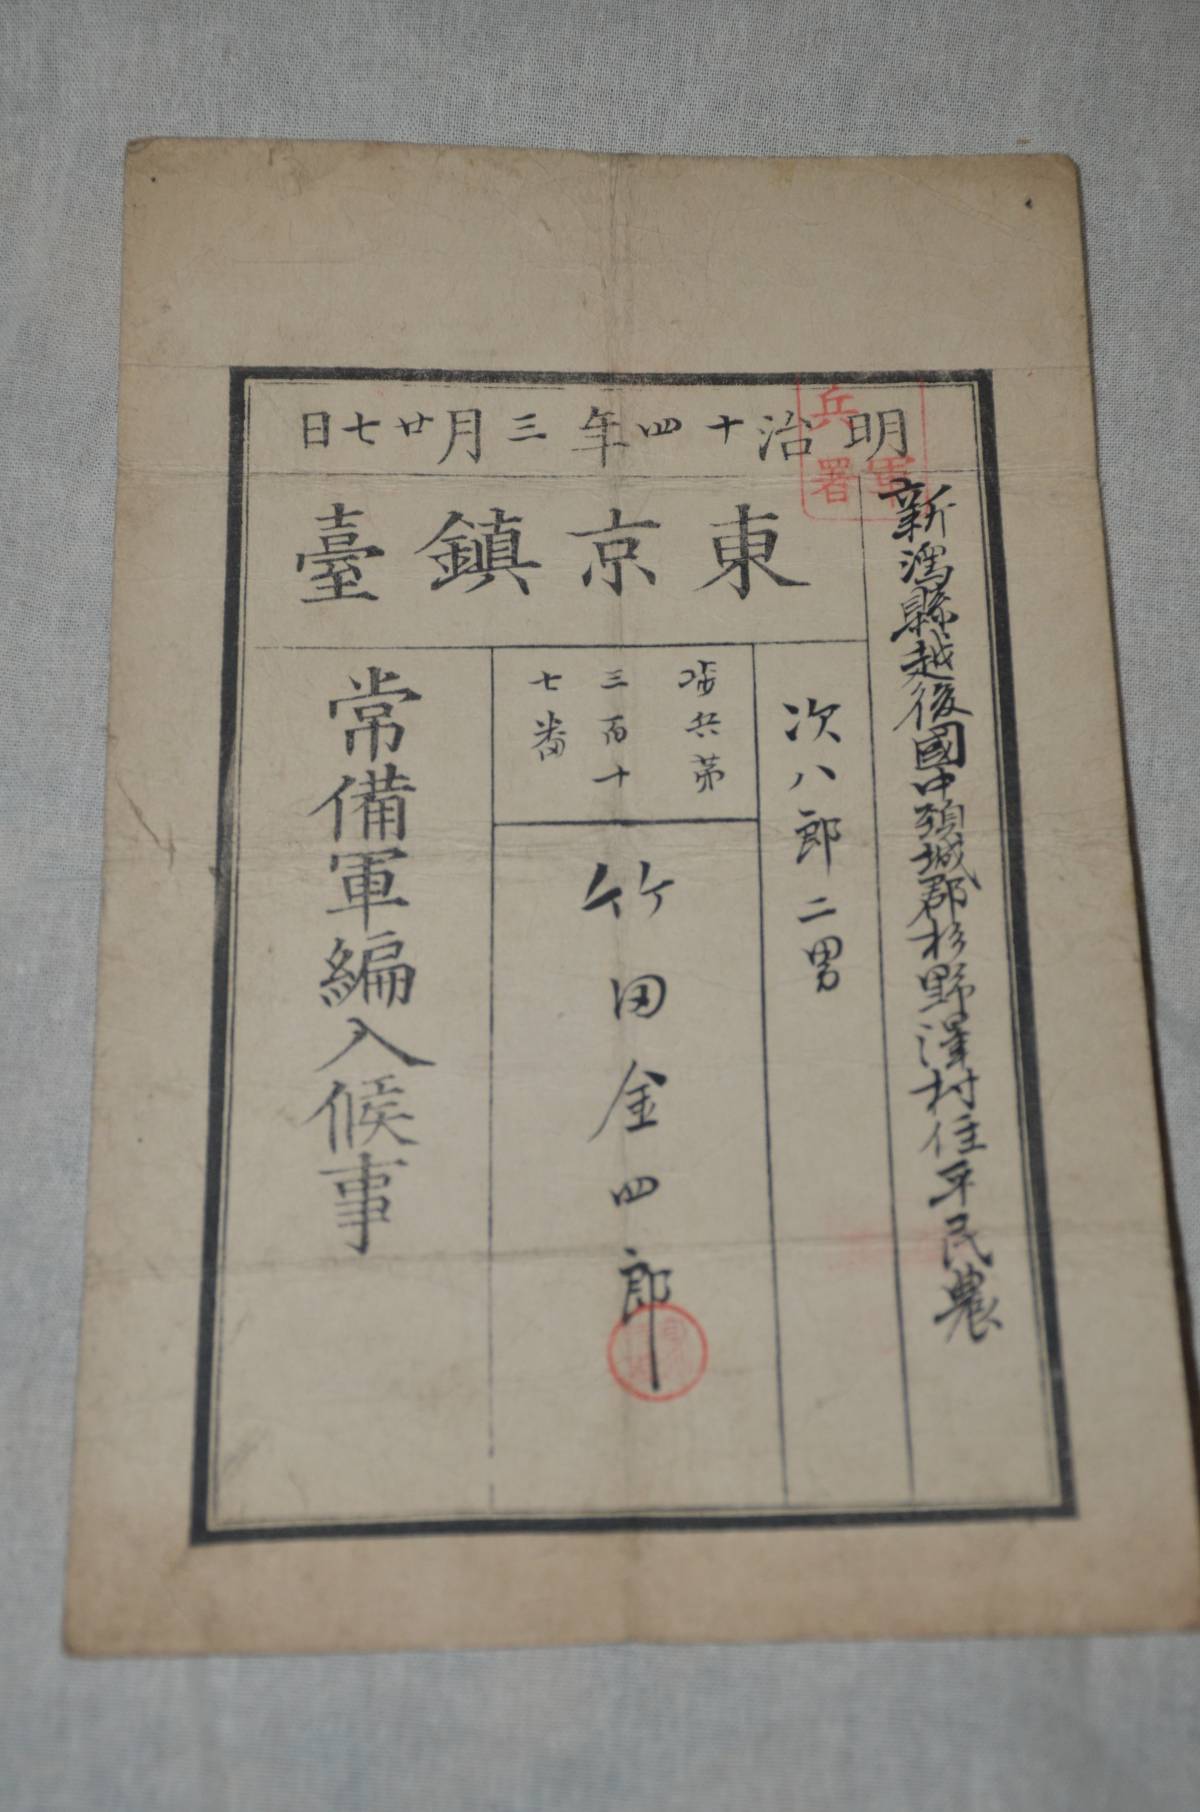 明治十四年三月廿七日
新潟縣越後國中頚城郡杉野澤村住平民農
東京鎮臺
次八郎二男
歩兵第
三百十
七番
竹田金四郎
常備軍編入候事
兵
軍
署